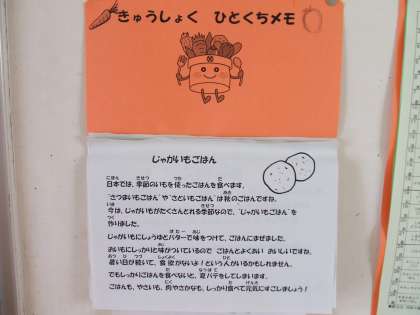 きゅうしょく ひとくちメモ
じゃがいもごはん
日本では、季節のいもを使ったごはんを食べます。
"さつまいもごはん"や"さといもごはん"は秋のごはんですね。
今は、じゃがいもがたくさんとれる季節なので、"じゃがいもごはん"を
作りました。
じゃがいもにしょうゆとバターで味をつけて、ごはんにまぜました。
おいもにしっかりと味がついているので ごはんとよくあい おいしいですね。
暑い日が続いて、食欲がないよ！という人がいるかもしれません。
でもしっかりごはんを食べないと、夏バテをしてしまいます。
ごはんも、やさいも、肉やさかなも、しっかり食べて元気にすごしましょう！